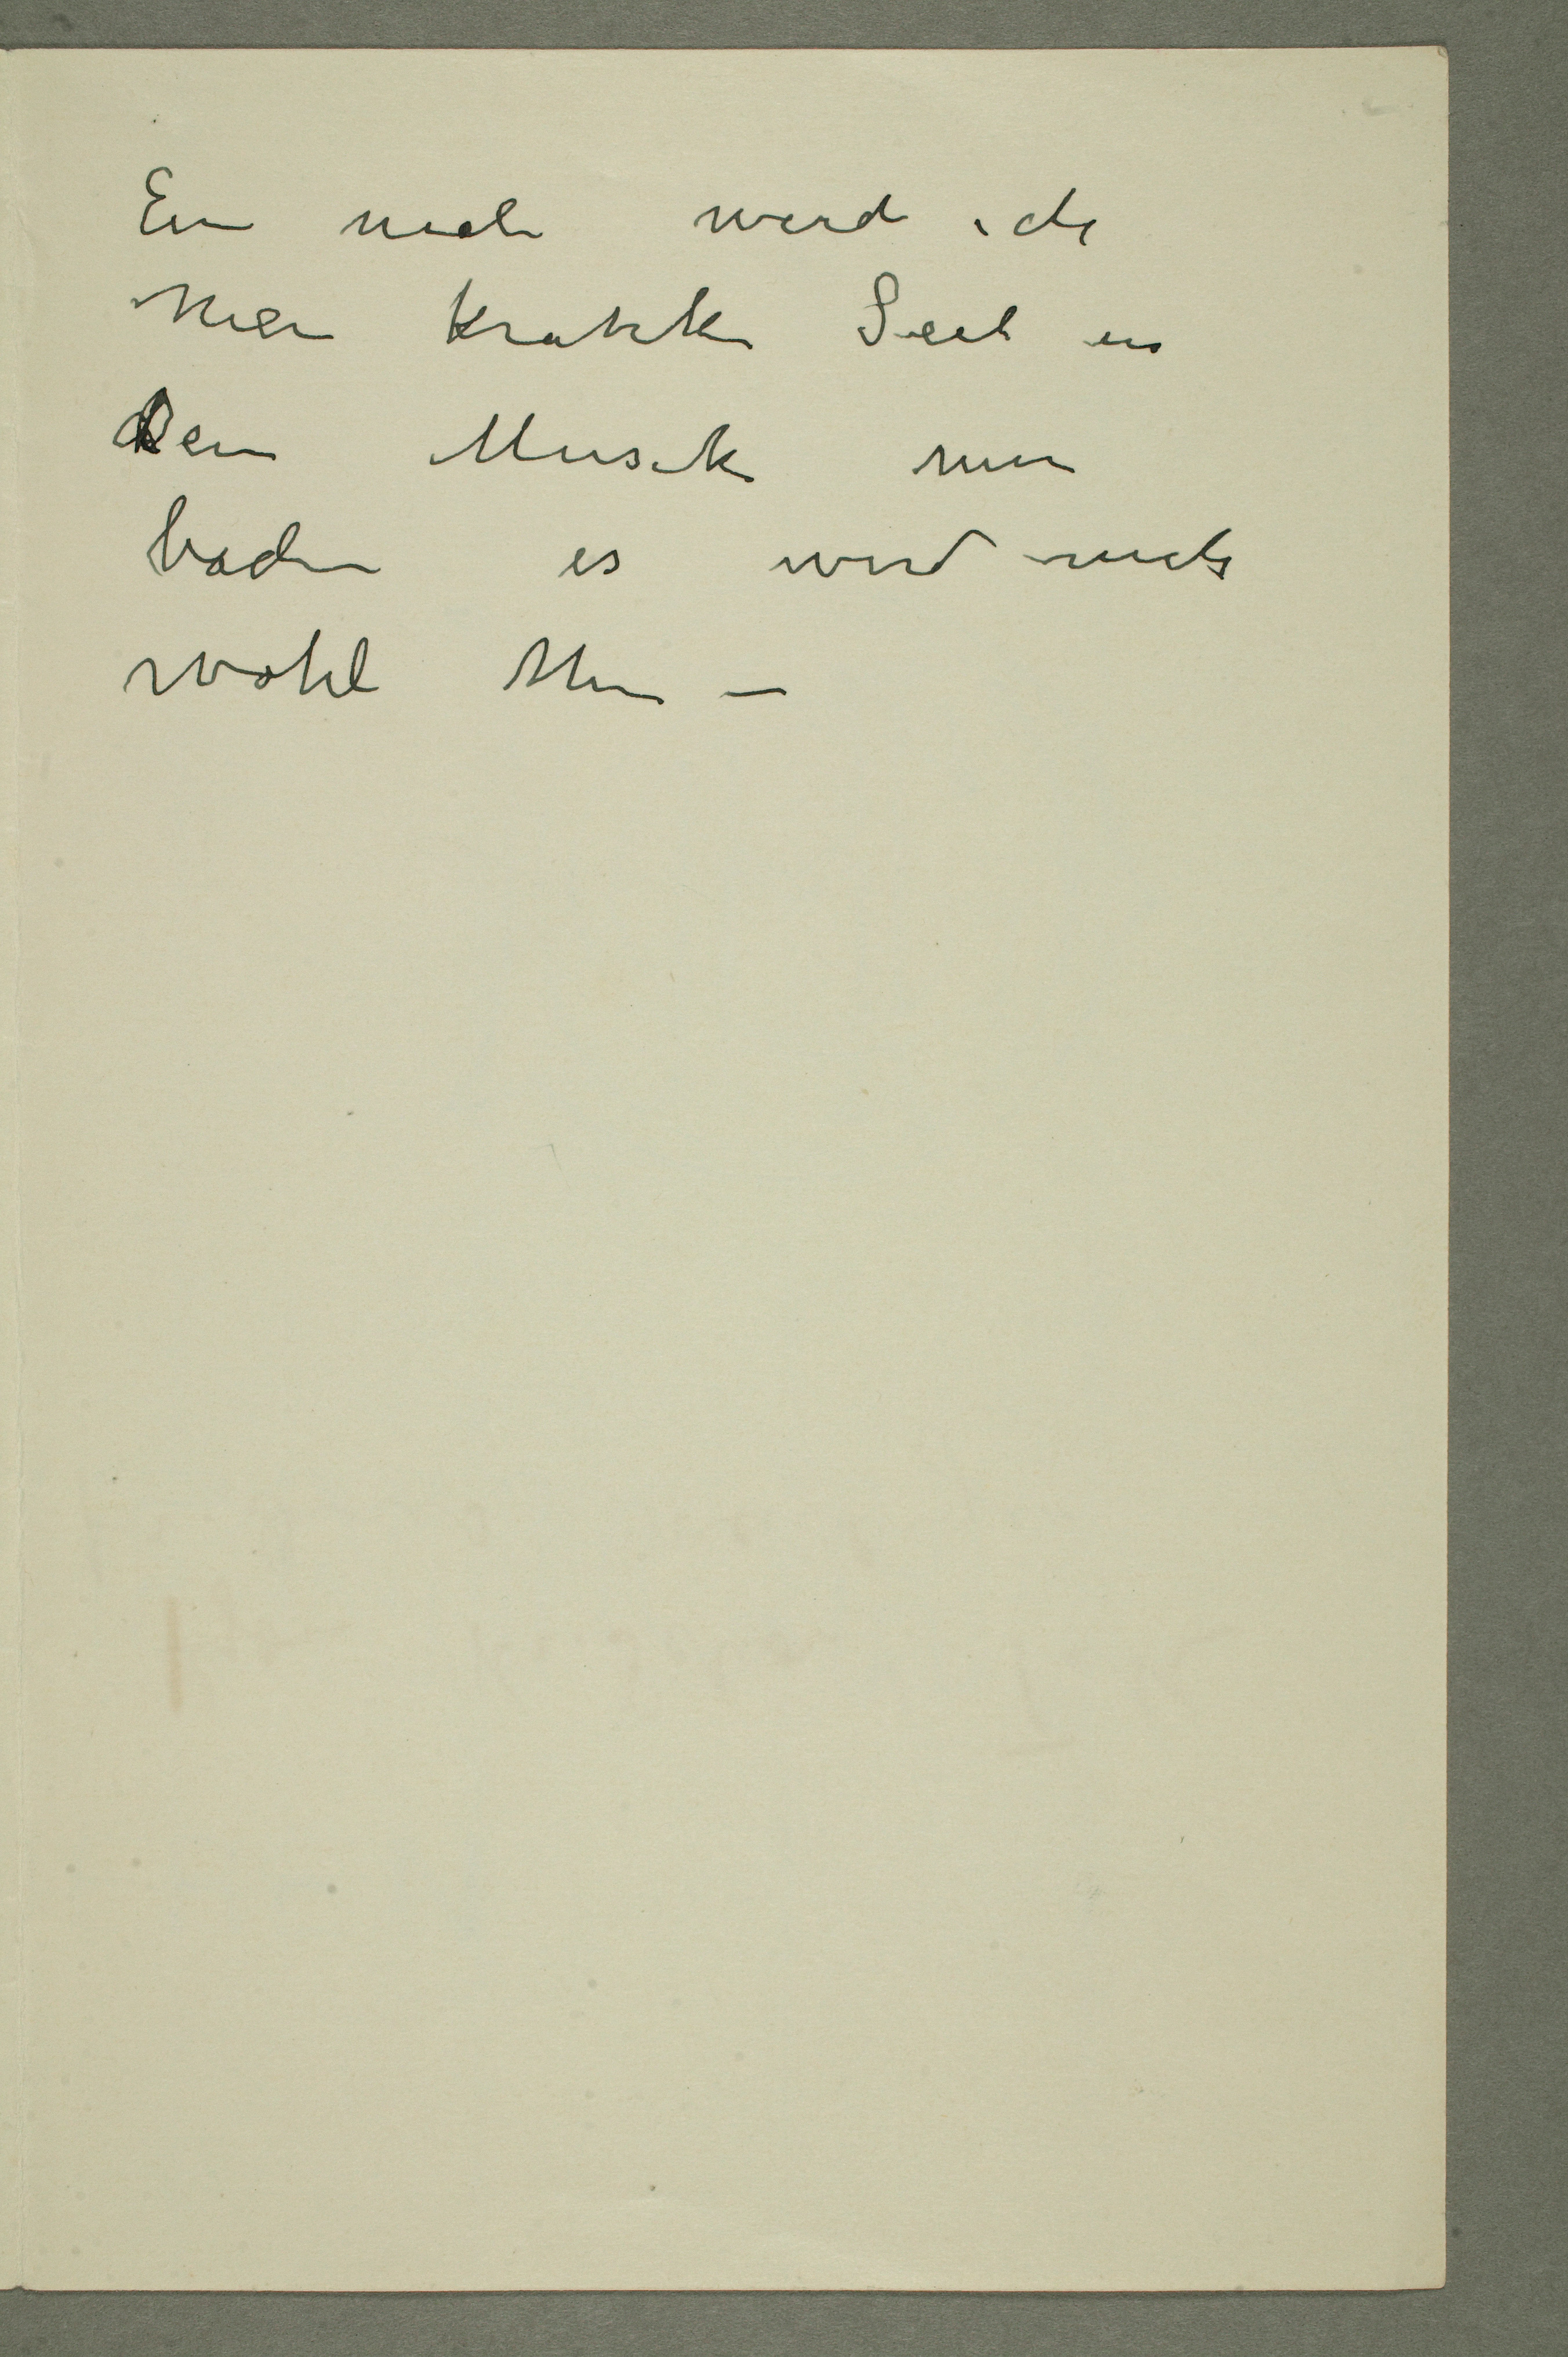 Ein mal werd ich
Mein kranke Seel in
Dein Musik nun
baden es wird mich
wohl thun –